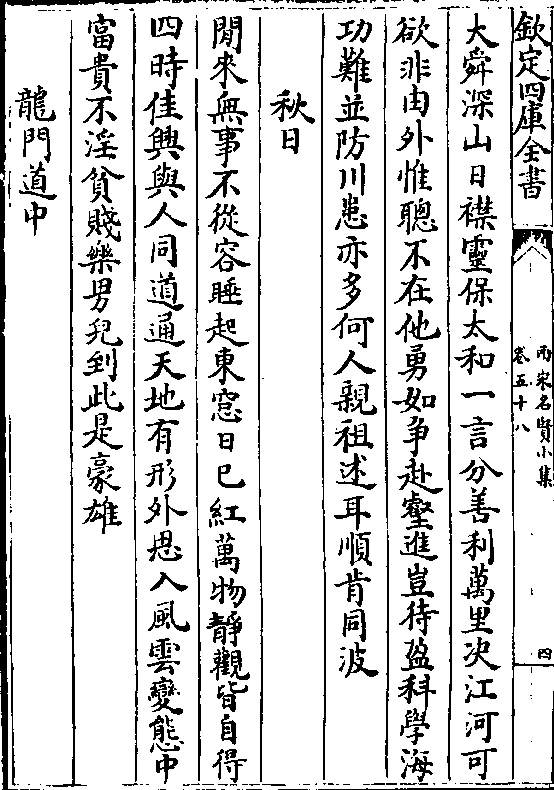 欽定四庫全書
兩宋名賢小集
卷五十八
四
大舜深山日襟靈保太和一言分善利萬里决江河可
欲非由外惟聰不在他勇如争赴壑進豈待盈科學海
功難並防川患亦多何人親祖述耳順肯同波
秋日
閒來無事不從容睡起東窓日已紅萬物靜觀皆自得
四時佳興與人同道通天地有形外思入風雲變態中
富貴不淫貧賤樂男兒到此是豪雄
龍門道中